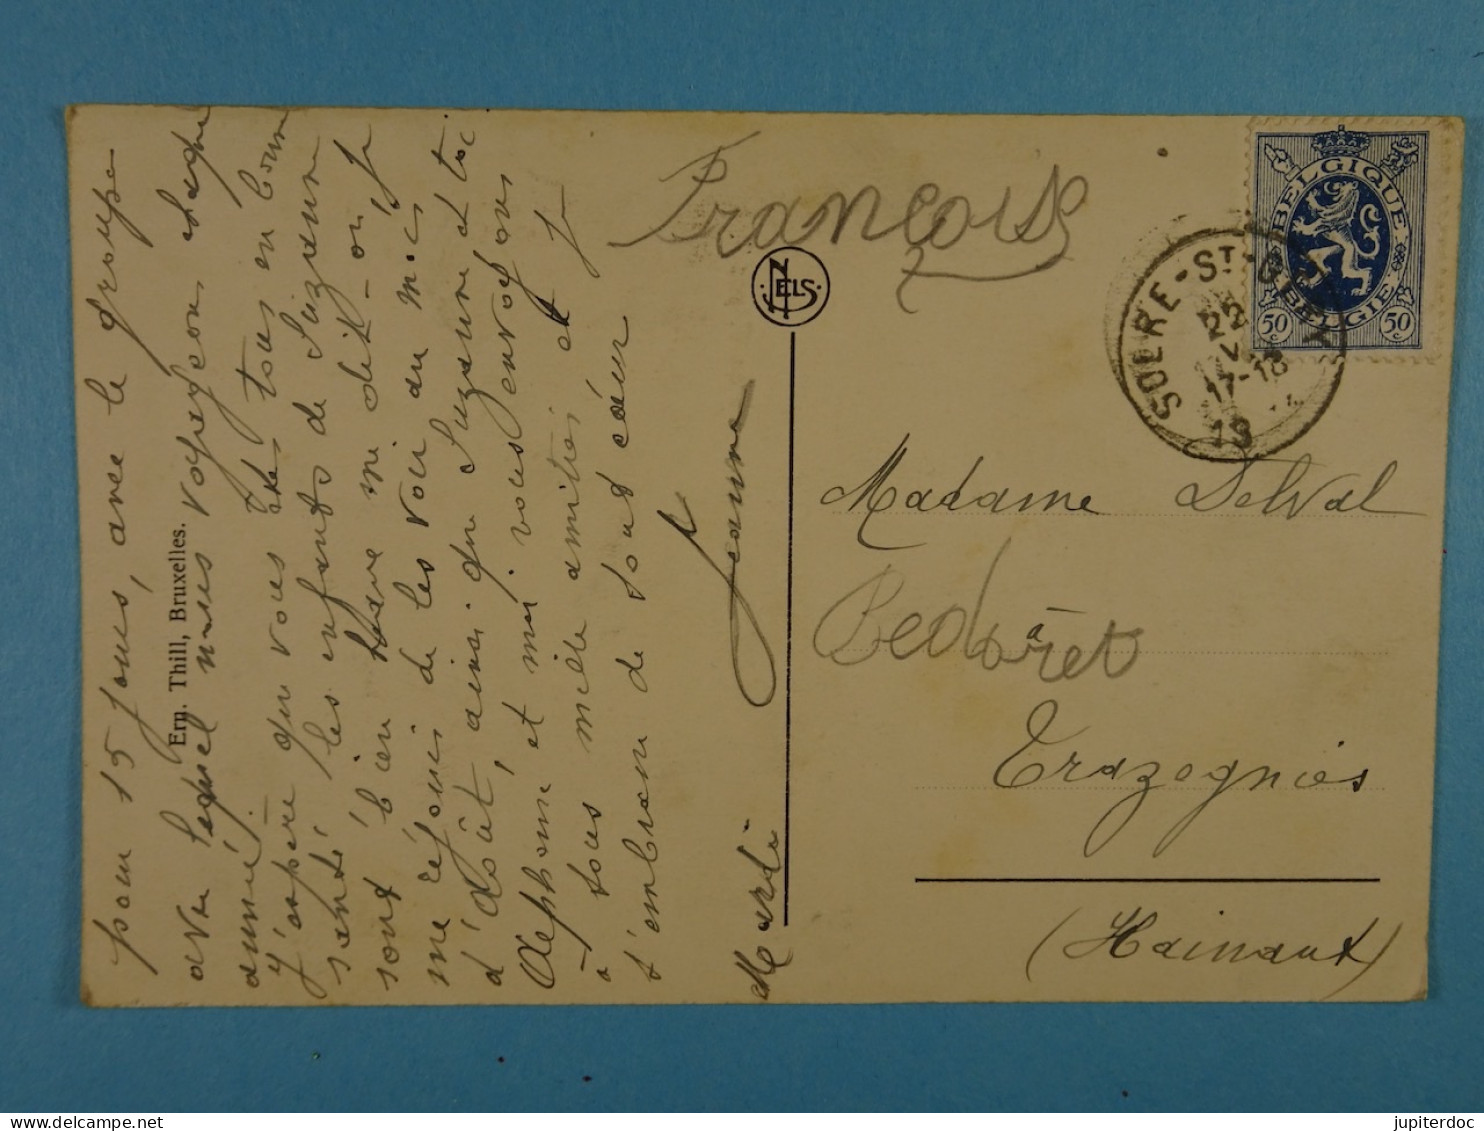 pour 15 jours, avec le groupe
avec lequel nous voyageons chaque
année.
J'espère que vous êtes tous en bonne
santé, les enfants de Suzanne
sont bien sage me dit-on, je
me réjouis de les voir au mois
d'août, ainsi que Suzanne et toi
Alphonse et moi vous envoyons
à tous mille amitiés et je
t'embrasse de tout cœur
Jeanne
Ern. Thill, Bruxelles.
NELS
François
SOLRE-ST-GÉRY
22
17-18
19
BELGIQUE
BELGIE
50 c
50 c
Madame Delval
Bedoret
à
Trazegnies
(Hainaut)
jupiterdoc